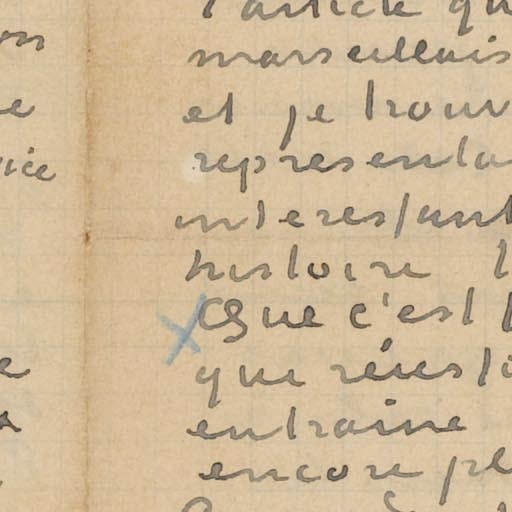 on
e
vice
e
l'article qu
marseillais
et je trouv
representa
interessant
histoire
Que c'est
que
entraine
encore pl